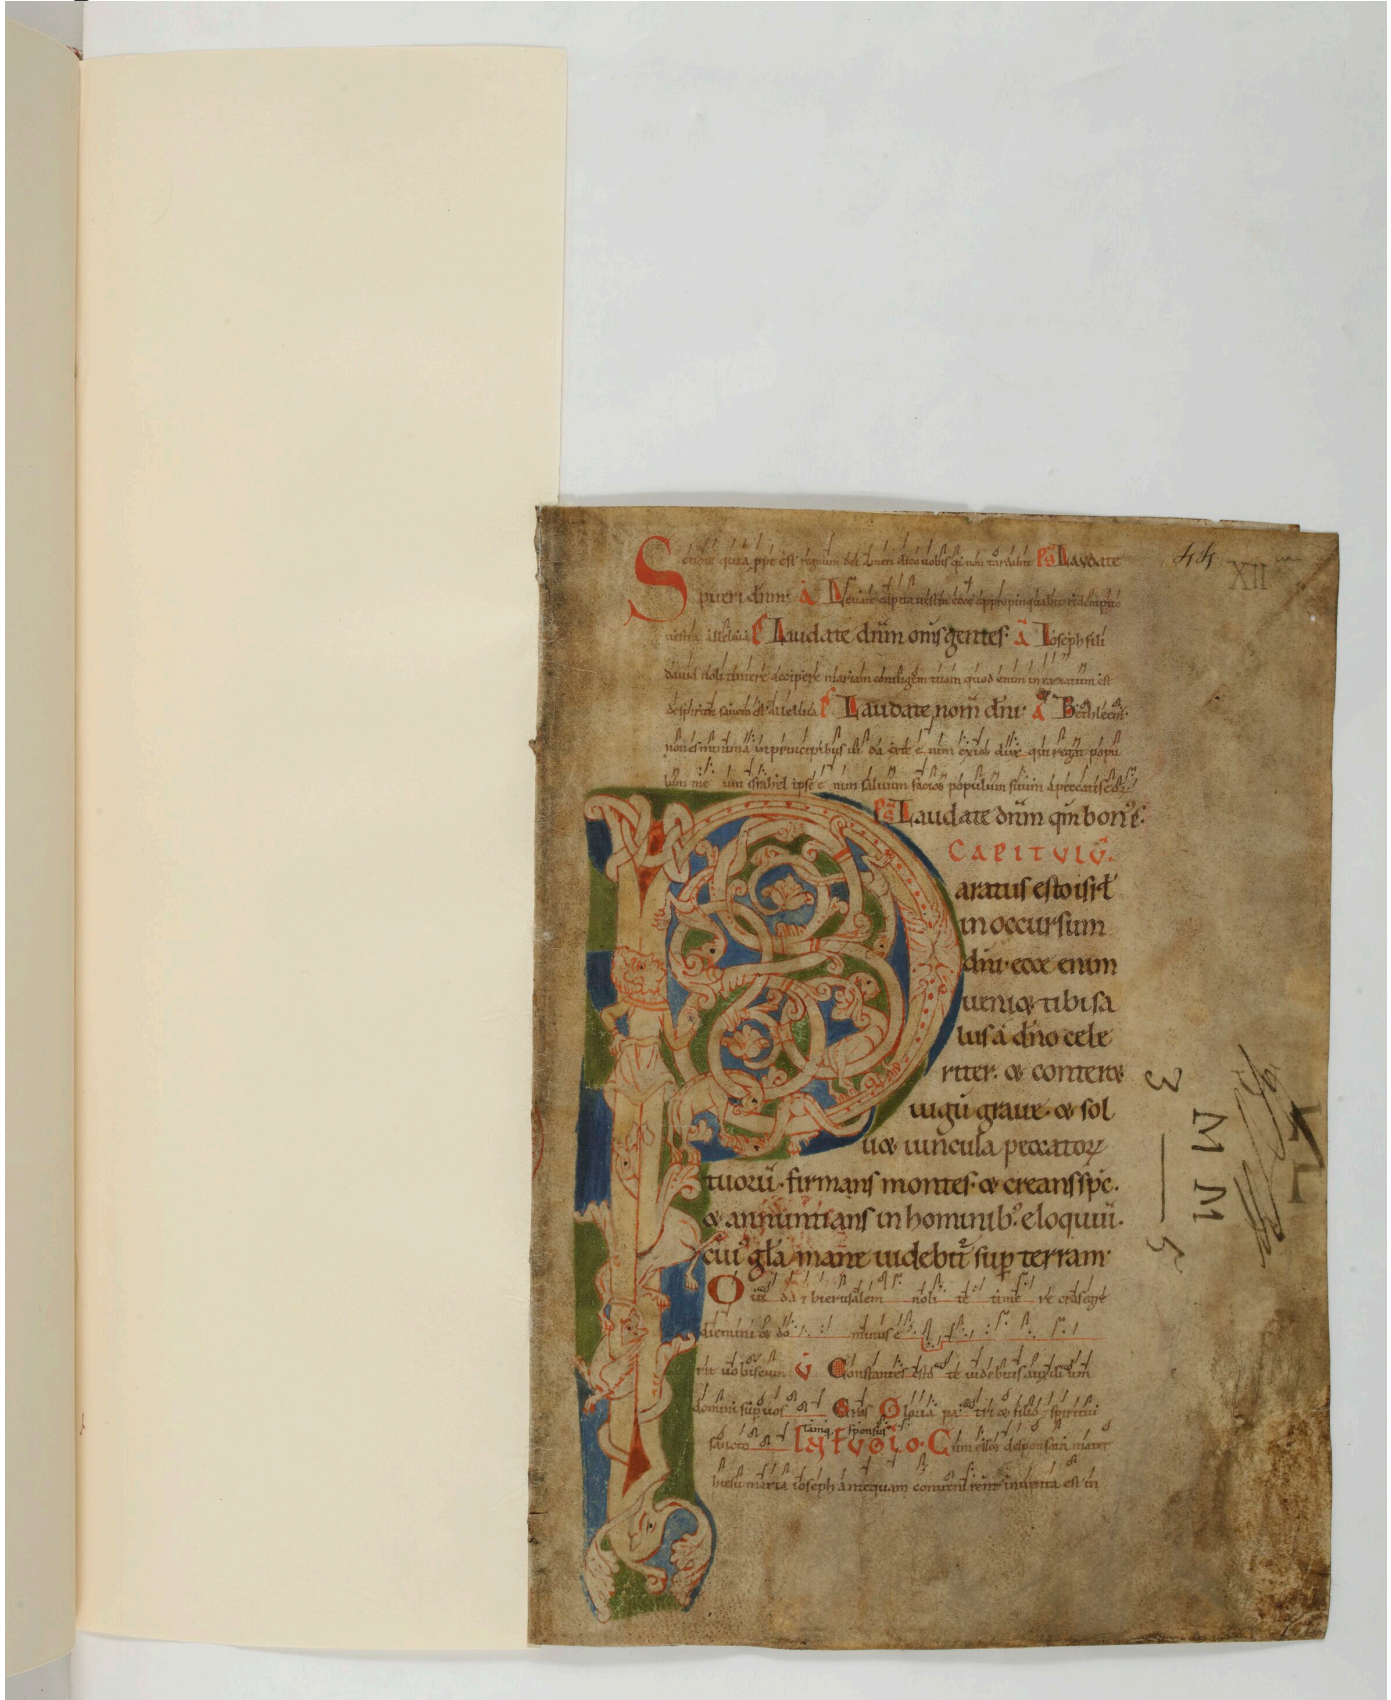 Scitote quia ppe est regnum dei amen dico uobis qa non tardabit Ps Laudate
pueri dnm· A Leuate capita uestra ecce appropinquabit redemptio
uestra alleluia P Laudate dnm oms gentes· A Ioseph fili
dauid noli timere accipere mariam coniugem tuam quod enim in ea natum est
de spiritu sancto est alleluia P Laudate nom dni· A Bethleem·
non es minima in principibus iu da ex te e nim exiet dux qui regat popu
lum me um israhel ipse e nim saluum faciet populum suum a peccatis eor
Ps Laudate dnm qm bonus·
CAPITULU·
Paratus esto isrl
in occursum
dni· ecce enim
ueniet tibi sa
lus a dno cele
riter· et conteret
iugu graue· et sol
uet uincula peccatorum
tuoru· firmans montes· et creans spc·
et annuntians in hominib; eloquiu·
cui gla mane uidebit sup terram·
O iude da et hierusalem noli te time re cras egre
diemini et do minus e
rit uobiscum V Constantes esto te uidebitis auxilium
domini sup uos Gloria pa tri et filio et spiritui
sancto tamq sponsus Cum esset desponsata mater
hiesu maria ioseph antequam conuenirent inuenta est in
44
XII
3
M M
5